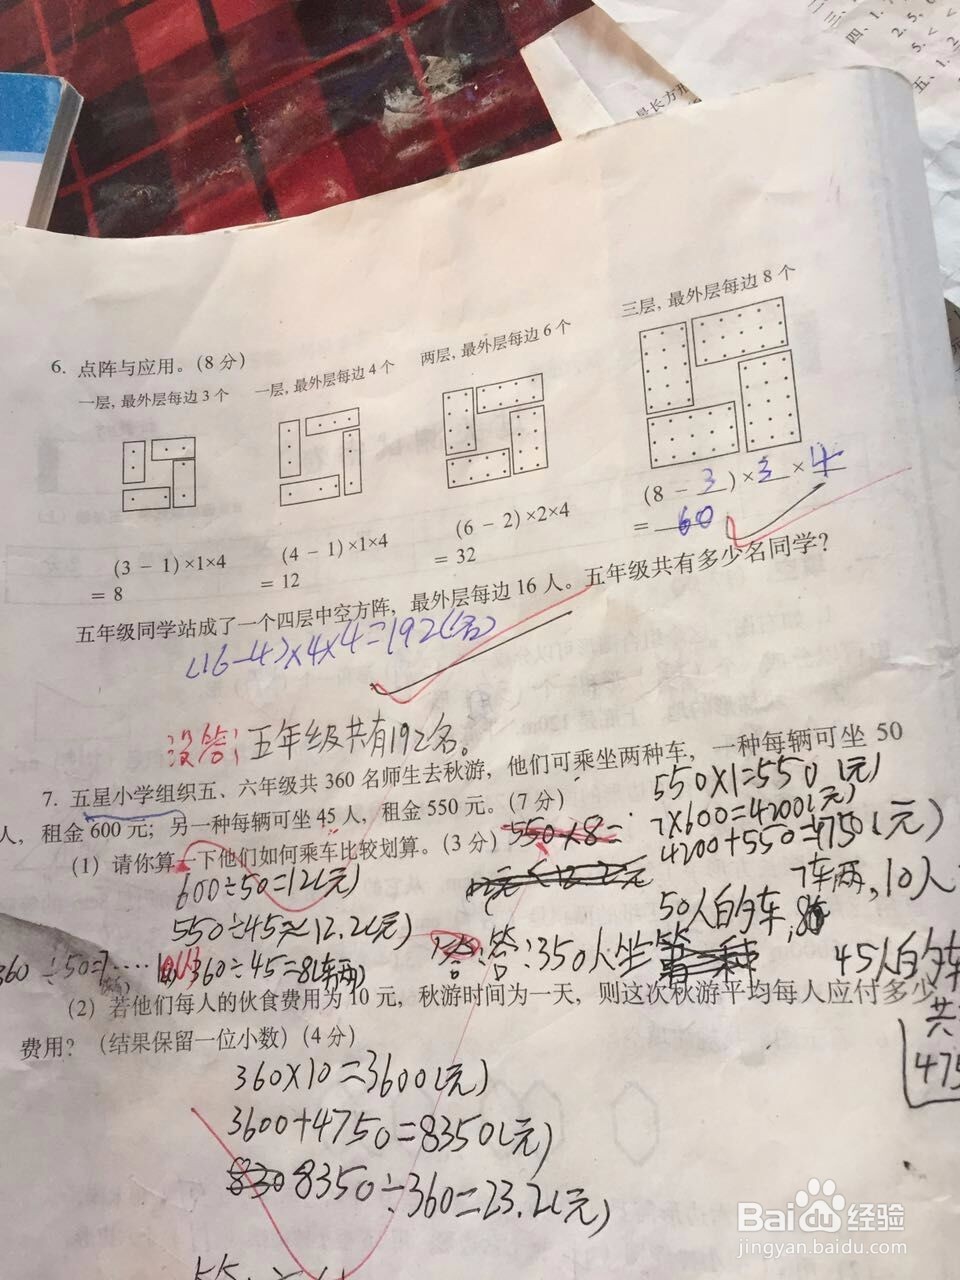 三层，最外层每边 8 个
6. 点阵与应用。(8 分)
一层，最外层每边 3 个
一层，最外层每边 4 个
两层，最外层每边 6 个
(3 − 1)×1×4
= 8
(4 − 1)×1×4
= 12
(6 − 2)×2×4
= 32
(8 − 3)×3×4
= 60
五年级同学站成了一个四层中空方阵，最外层每边 16 人。五年级共有多少名同学？
(16-4)×4×4=192(名)
没答：五年级共有192名。
7. 五星小学组织五、六年级共 360 名师生去秋游，他们可乘坐两种车，一种每辆可坐 50
人，租金 600 元；另一种每辆可坐 45 人，租金 550 元。(7 分)
550×1=550(元)
7×600=4200(元)
4200+550=4750(元)
(1) 请你算一下他们如何乘车比较划算。(3 分)
550×8=
600÷50=12(元)
550÷45≈12.2(元)
360÷50=7
360÷45=8(车两)
7车两,10人
50人的车,
答:350人坐
45人的车
共
475
(2) 若他们每人的伙食费用为 10 元，秋游时间为一天，则这次秋游平均每人应付多少
费用？(结果保留一位小数)(4 分)
360×10=3600(元)
3600+4750=8350(元)
8350÷360=23.2(元)
Baidu经验
jingyan.baidu.com